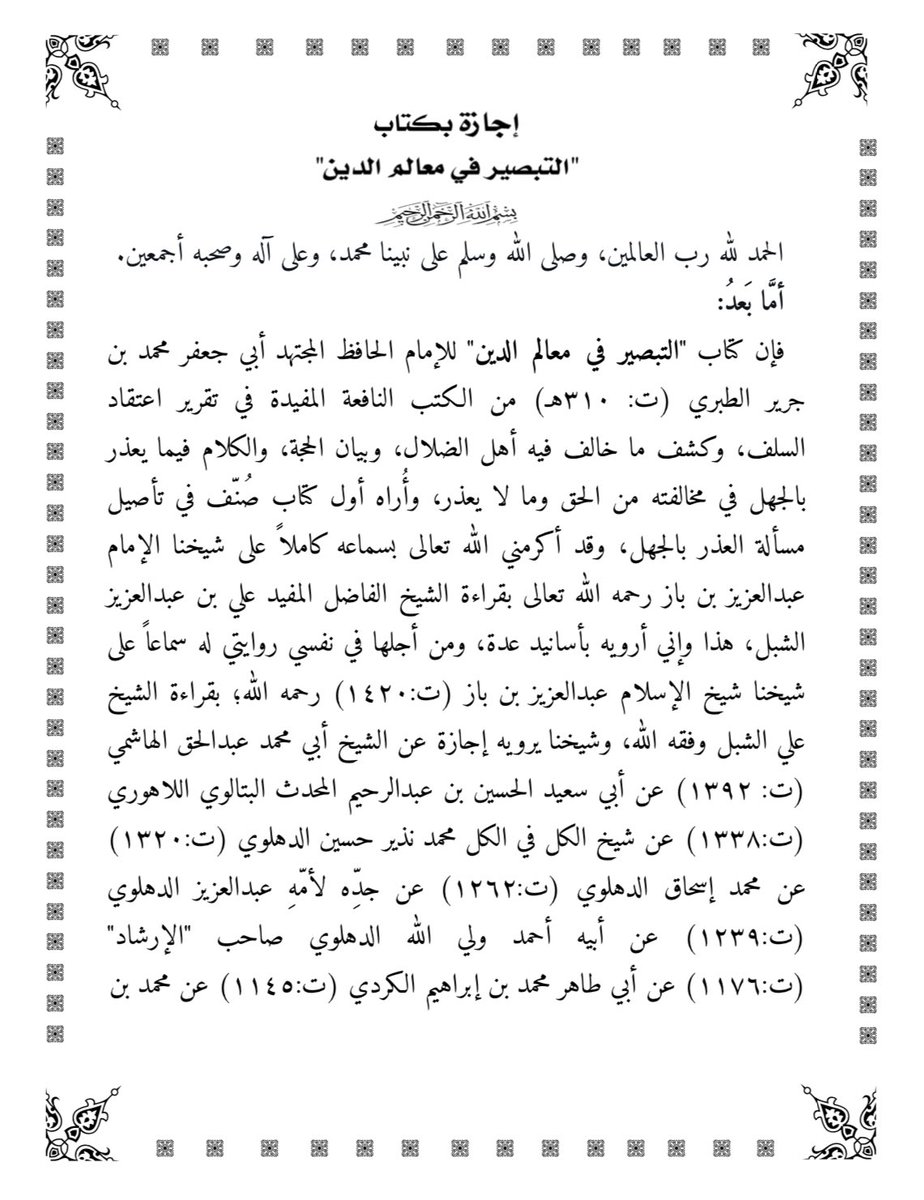 إجازة بكتاب
"التبصير في معالم الدين"
بسم الله الرحمن الرحيم
الحمد لله رب العالمين، وصلى الله وسلم على نبينا محمد، وعلى آله وصحبه أجمعين.
أمَّا بَعدُ:
فإن كتاب "التبصير في معالم الدين" للإمام الحافظ المجتهد أبي جعفر محمد بن
جرير الطبري (ت: ٣١٠هـ) من الكتب النافعة المفيدة في تقرير اعتقاد
السلف، وكشف ما خالف فيه أهل الضلال، وبيان الحجة، والكلام فيما يعذر
بالجهل في مخالفته من الحق وما لا يعذر، وأُراه أول كتاب صُنّف في تأصيل
مسألة العذر بالجهل، وقد أكرمني الله تعالى بسماعه كاملاً على شيخنا الإمام
عبدالعزيز بن باز رحمه الله تعالى بقراءة الشيخ الفاضل المفيد علي بن عبدالعزيز
الشبل، هذا وإني أرويه بأسانيد عدة، ومن أجلها في نفسي روايتي له سماعاً على
شيخنا شيخ الإسلام عبدالعزيز بن باز (ت:١٤٢٠) رحمه الله؛ بقراءة الشيخ
علي الشبل وفقه الله، وشيخنا يرويه إجازة عن الشيخ أبي محمد عبدالحق الهاشمي
(ت: ١٣٩٢) عن أبي سعيد الحسين بن عبدالرحيم المحدث البتالوي اللاهوري
(ت:١٣٣٨) عن شيخ الكل في الكل محمد نذير حسين الدهلوي (ت:١٣٢٠)
عن محمد إسحاق الدهلوي (ت:١٢٦٢) عن جدِّه لأمّهِ عبدالعزيز الدهلوي
(ت:١٢٣٩) عن أبيه أحمد ولي الله الدهلوي صاحب "الإرشاد"
(ت:١١٧٦) عن أبي طاهر محمد بن إبراهيم الكردي (ت:١١٤٥) عن محمد بن